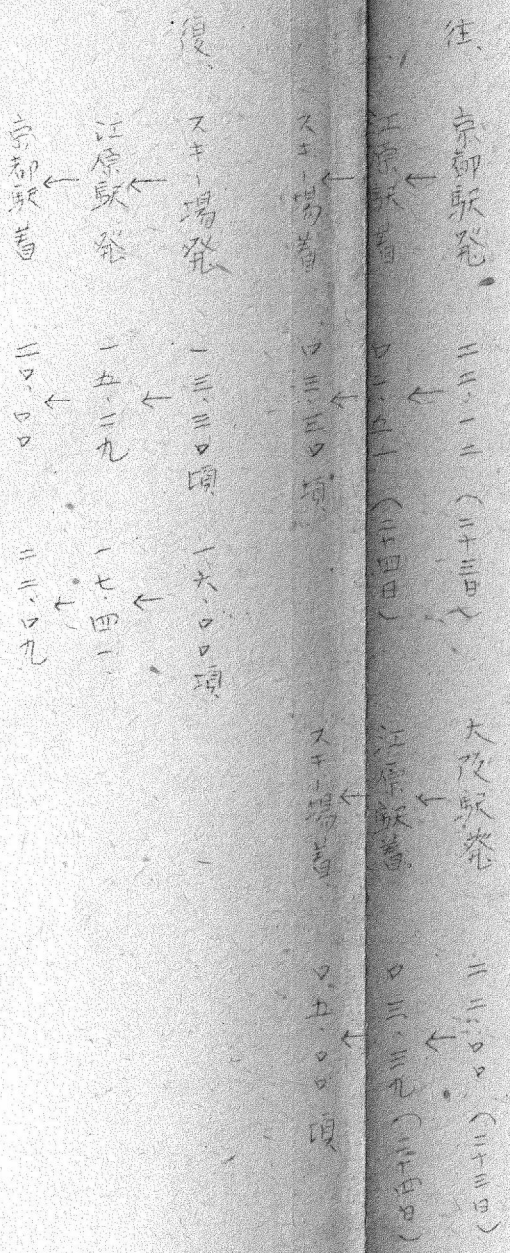 往、 京都駅発 二二、一二 (二十三日) 大阪駅発 二二、〇〇 (二十三日)
↓ ↓ ↓ ↓
江原駅着 〇二、五一 (二十四日) 江原駅着 〇三、三九 (二十四日)
↓ ↓ ↓ ↓
スキー場着 〇三、三〇頃 スキー場着 〇五、〇〇頃
復、 スキー場発 一三、三〇頃 一六、〇〇頃
↓ ↓ ↓
江原駅発 一五、二九 一七、四一
↓ ↓ ↓
京都駅着 二〇、〇〇 二二、〇九